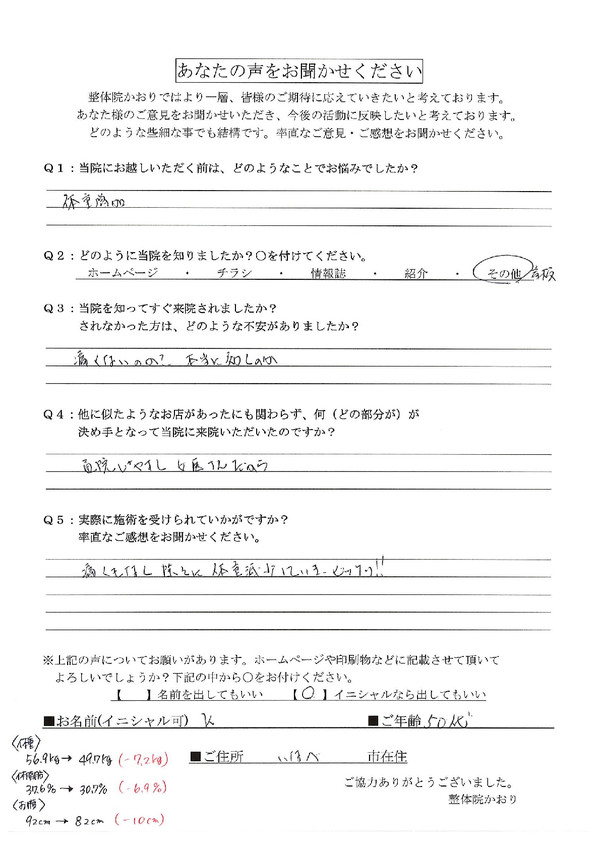 あなたの声をお聞かせください
整体院かおりではより一層、皆様のご期待に応えていきたいと考えております。
あなた様のご意見をお聞かせいただき、今後の活動に反映したいと考えております。
どのような些細な事でも結構です。率直なご意見・ご感想をお聞かせください。
Q1：当院にお越しいただく前は、どのようなことでお悩みでしたか？
体重増加
Q2：どのように当院を知りましたか？〇を付けてください。
ホームページ ・ チラシ ・ 情報誌 ・ 紹介 ・ その他 看板
Q3：当院を知ってすぐ来院されましたか？
されなかった方は、どのような不安がありましたか？
痛くないのか？ 本当に効くのか
Q4：他に似たようなお店があったにも関わらず、何（どの部分が）が
決め手となって当院に来院いただいたのですか？
通院しやすし
Q5：実際に施術を受けられていかがですか？
率直なご感想をお聞かせください。
痛くもなし 体重減少していき ビックリ!!
※上記の声についてお願いがあります。ホームページや印刷物などに記載させて頂いて
よろしいでしょうか？下記の中から〇をお付けください。
【 】名前を出してもいい 【〇】イニシャルなら出してもいい
■お名前(イニシャル可) K ■ご年齢 50代
〈体重〉
56.9kg → 49.7kg (-7.2kg) ■ご住所 市在住
〈体脂肪〉
37.6% → 30.7% (-6.9%)
ご協力ありがとうございました。
〈お腹〉
整体院かおり
92cm → 82cm (-10cm)